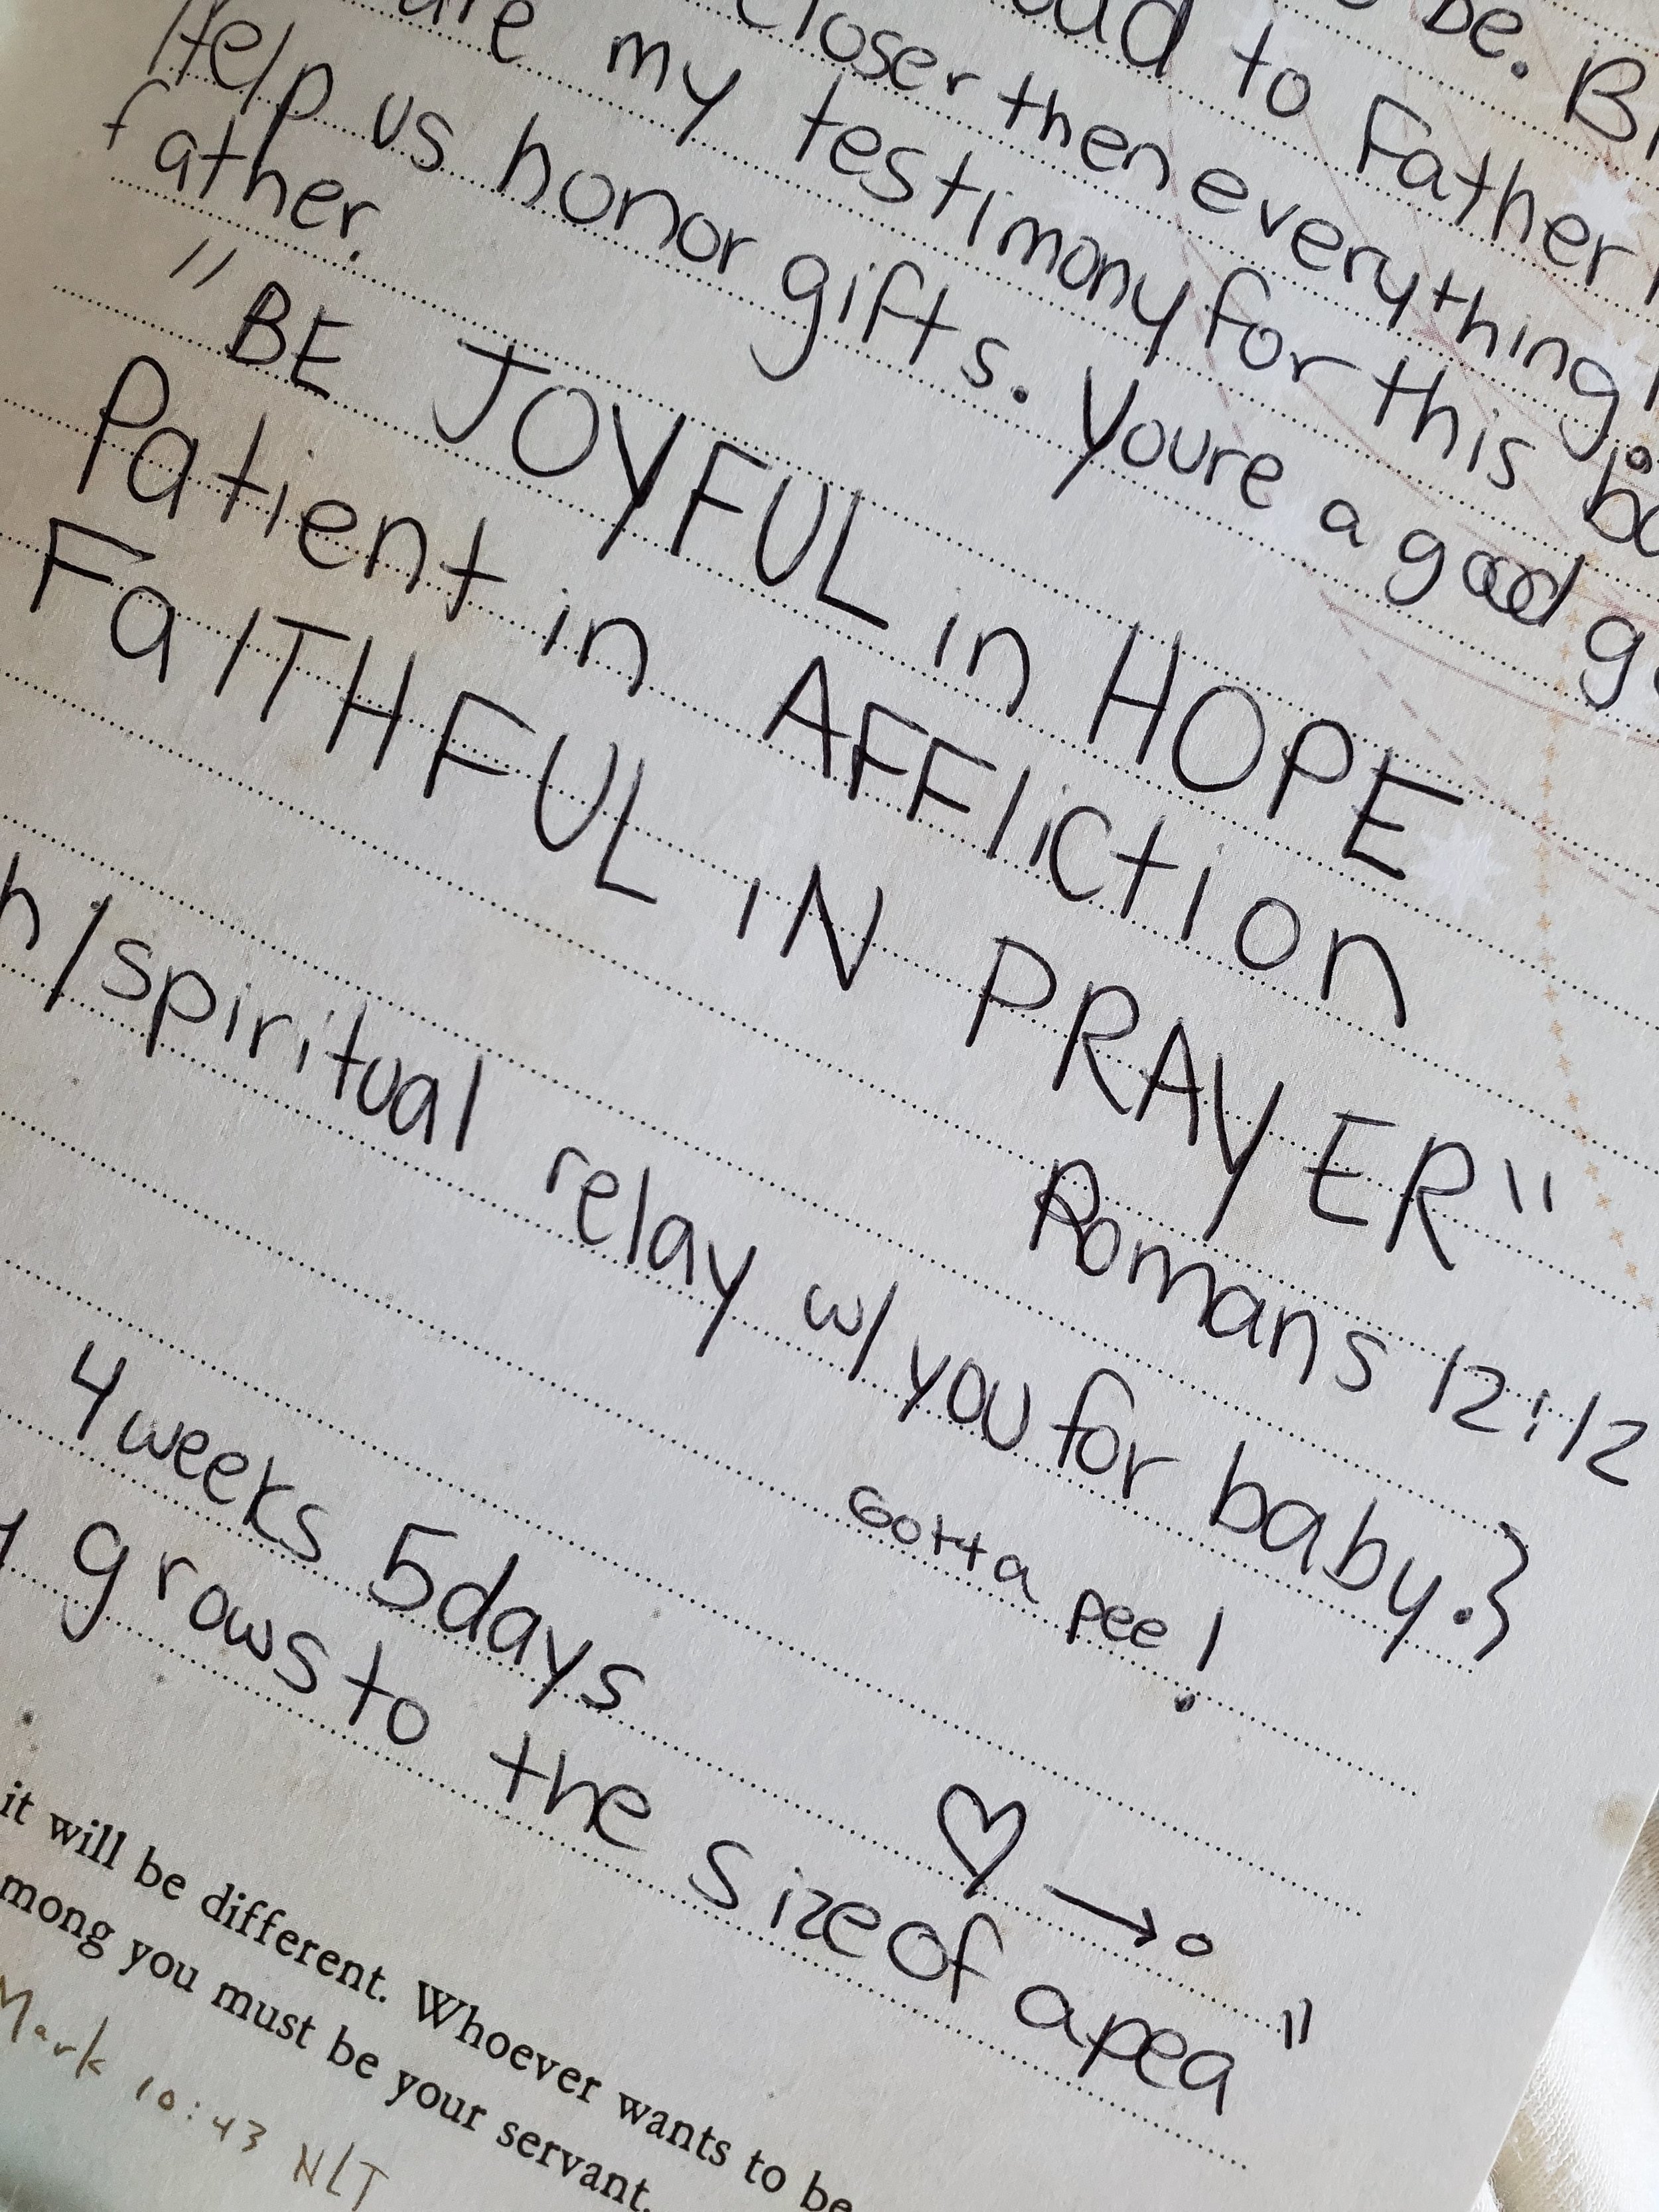 be. B
to Father
closer then everything!
my testimony for this
Help us honor gifts. Youre a good
father.
"BE JOYFUL in HOPE
Patient in AFFliction
FaITHFUL iN PRAYER"
Romans 12:12
/spiritual relay w/ you for baby.}
Gotta pee!
4 weeks 5 days
♡ → o
grows to the size of a pea"
it will be different. Whoever wants to be
mong you must be your servant.
Mark 10:43 NLT